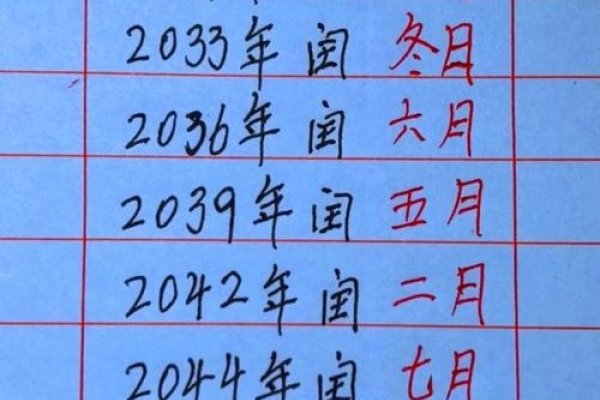 2033年闰 冬日
2036年闰 六月
2039年闰 五月
2042年闰 二月
2044年闰 七月